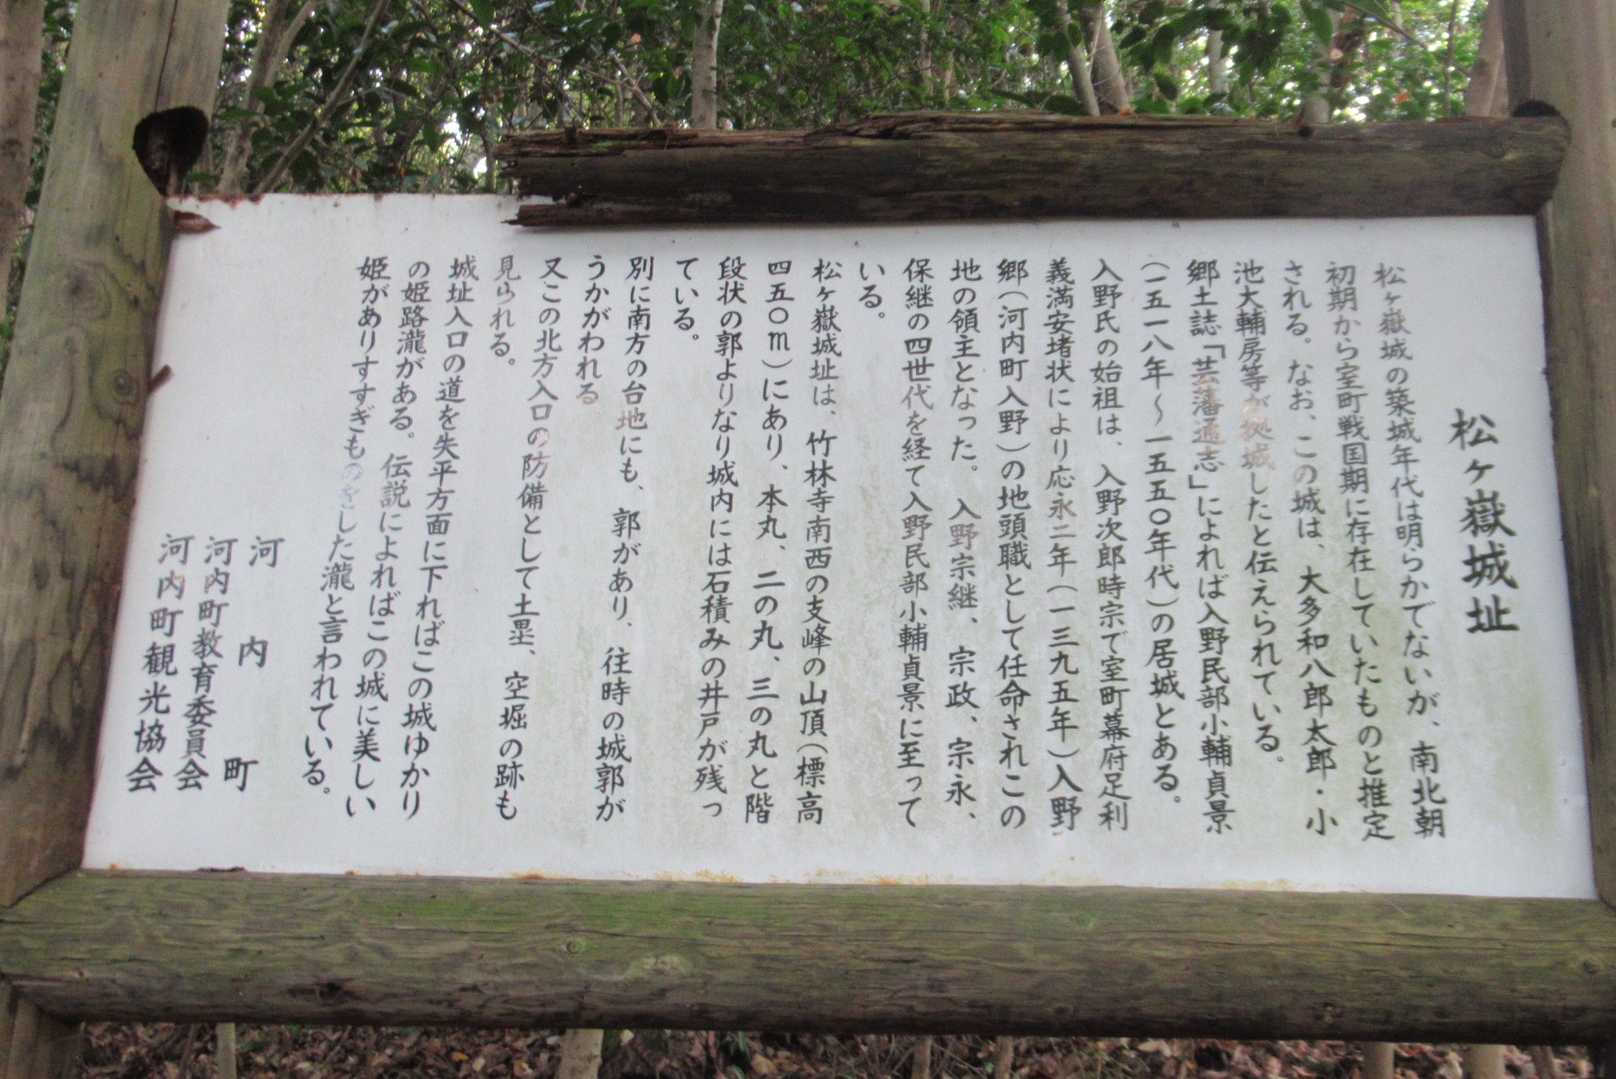 松ヶ嶽城址
松ヶ嶽城の築城年代は明らかでないが、南北朝
初期から室町戦国期に存在していたものと推定
される。なお、この城は、大多和八郎太郎・小
池大輔房等が拠城したと伝えられている。
郷土誌「芸藩通志」によれば入野民部小輔貞景
(一五一八年～一五五〇年代)の居城とある。
入野氏の始祖は、入野次郎時宗で室町幕府足利
義満安堵状により応永二年(一三九五年)入野
郷(河内町入野)の地頭職として任命されこの
地の領主となった。入野宗継、宗政、宗永、
保継の四世代を経て入野民部小輔貞景に至って
いる。
松ヶ嶽城址は、竹林寺南西の支峰の山頂(標高
四五〇m)にあり、本丸、二の丸、三の丸と階
段状の郭よりなり城内には石積みの井戸が残っ
ている。
別に南方の台地にも、郭があり、往時の城郭が
うかがわれる
又この北方入口の防備として土塁、空堀の跡も
見られる。
城址入口の道を失平方面に下ればこの城ゆかり
の姫路瀧がある。伝説によればこの城に美しい
姫がありすすぎものをした瀧と言われている。
河内町
河内町教育委員会
河内町観光協会